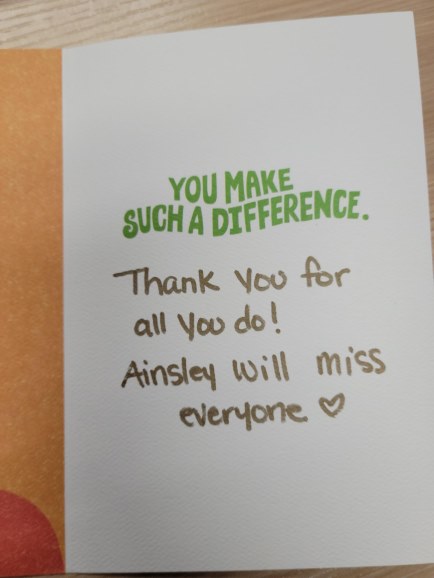 YOU MAKE
SUCH A DIFFERENCE.
Thank you for
all you do!
Ainsley will miss
everyone ♡